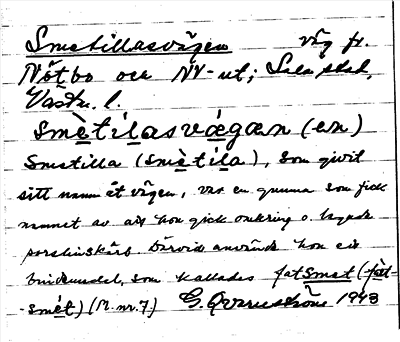 Smetillasvägen väg fr.
Nötbo och NV-ut; Sala stad,
Västm. l.
smètílasvǽgæn (en)
Smetilla (smètíla), som givit
sitt namn åt vägen, var en gumma som fick
namnet av att hon gick omkring o. lagade
porslinskärl. Därvid använde hon ett
bindemedel, som kallades fatsmet (fàt-
-smét) (M. nr. 7.) G. Qvarnström 1943